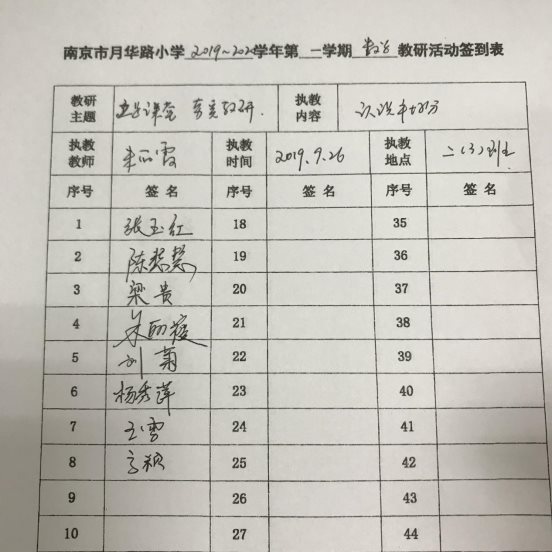 南京市月华路小学 2019~2020学年第 一 学期 数学 教研活动签到表
教研主题 课堂 教研 执教内容 认识
执教教师 朱丽霞 执教时间 2019.9.26 执教地点 二(3)班
序号 签名 序号 签名 序号 签名
1 张玉红 18 35
2 陈慧慧 19 36
3 梁贵 20 37
4 朱丽霞 21 38
5 刘菊 22 39
6 杨秀萍 23 40
7 王雪 24 41
8 颖 25 42
9 26 43
10 27 44